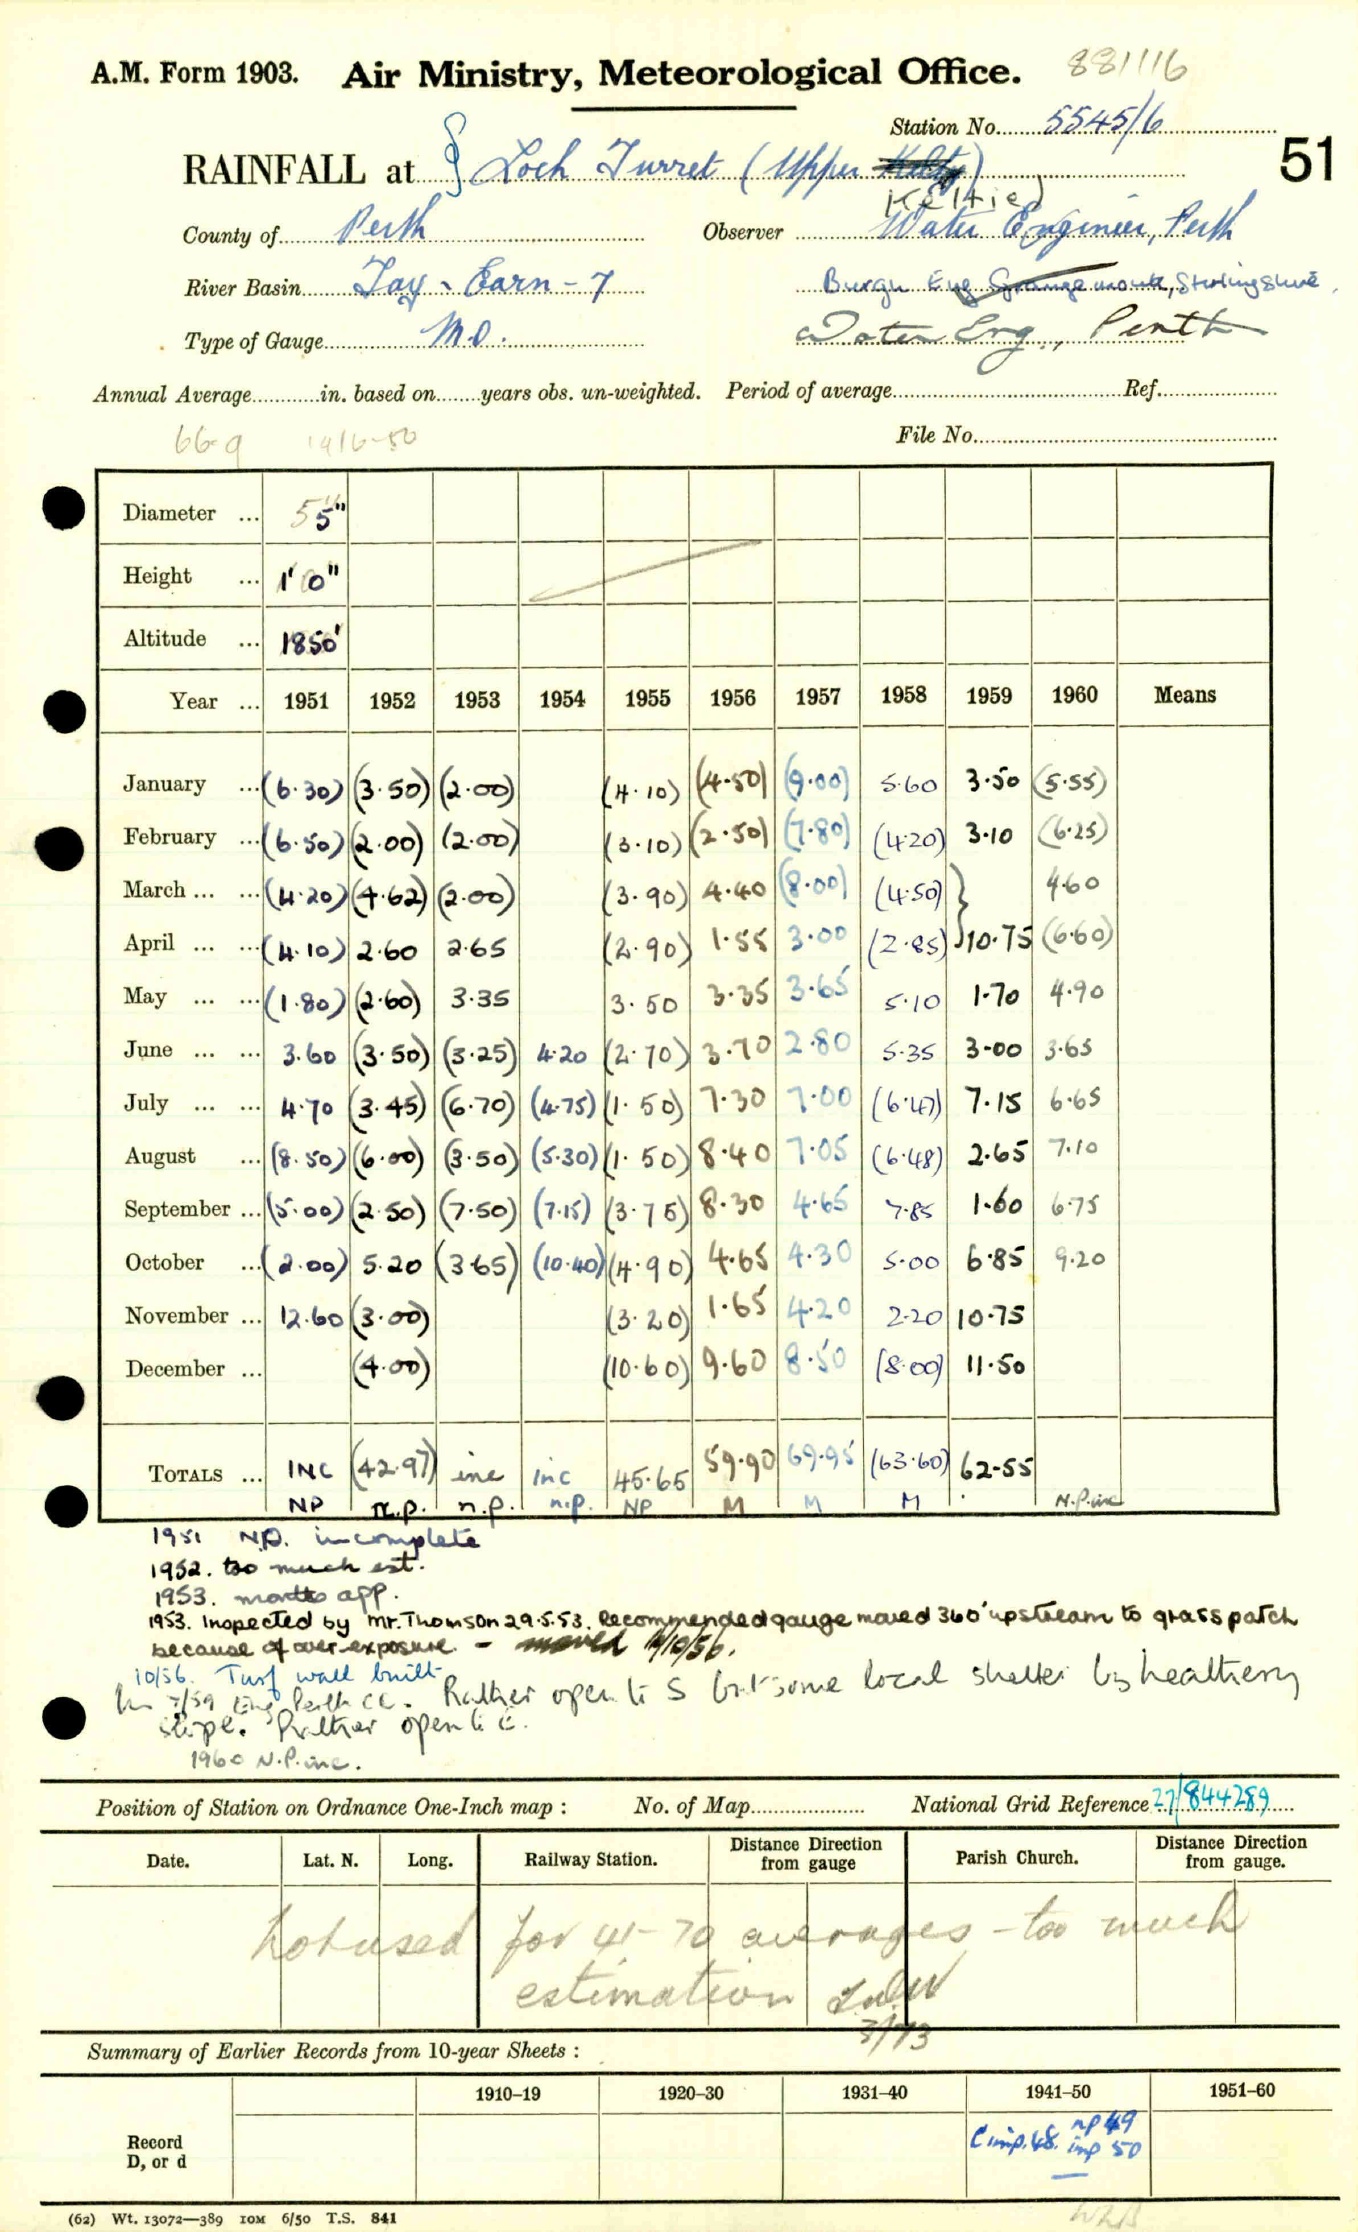 A.M. Form 1903. Air Ministry, Meteorological Office. 881116
Station No. 5545/6
51
RAINFALL at § Loch Turret (Upper Keltie)
County of Perth Observer Water Engineer, Perth
River Basin Tay - Earn - 7 Burgh Eng Grangemouth, Stirlingshire.
Type of Gauge M.O. Water Eng., Perth
Annual Average in. based on years obs. un-weighted. Period of average Ref.
66.9 1916-50 File No.
Diameter ... 5"
Height ... 1' 0"
Altitude ... 1850'
Year ... 1951 1952 1953 1954 1955 1956 1957 1958 1959 1960 Means
January ... (6.30) (3.50) (2.00) (4.10) (4.50) (9.00) 5.60 3.50 (5.55)
February ... (6.50) (2.00) (2.00) (3.10) (2.50) (7.80) (4.20) 3.10 (6.25)
March ... ... (4.20) (4.62) (2.00) (3.90) 4.40 (8.00) (4.50) } 4.60
April ... ... (4.10) 2.60 2.65 (2.90) 1.55 3.00 (2.85) 10.75 (6.60)
May ... ... (1.80) (2.60) 3.35 3.50 3.35 3.65 5.10 1.70 4.90
June ... ... 3.60 (3.50) (3.25) 4.20 (2.70) 3.70 2.80 5.35 3.00 3.65
July ... ... 4.70 (3.45) (6.70) (4.75) (1.50) 7.30 7.00 (6.47) 7.15 6.65
August ... (8.50) (6.00) (3.50) (5.30) (1.50) 8.40 7.05 (6.48) 2.65 7.10
September ... (5.00) (2.50) (7.50) (7.15) (3.75) 8.30 4.65 7.85 1.60 6.75
October ... (2.00) 5.20 (3.65) (10.40) (4.90) 4.65 4.30 5.00 6.85 9.20
November ... 12.60 (3.00) (3.20) 1.65 4.20 2.20 10.75
December ... (4.00) (10.60) 9.60 8.50 (8.00) 11.50
TOTALS ... INC (42.97) inc inc 45.65 59.90 69.95 (63.60) 62.55
NP n.p. n.p. n.p. NP M M M N.P. inc
1951 N.P. incomplete
1952. too much est.
1953. months app.
1953. Inspected by Mr. Thomson 29.5.53. Recommended gauge moved 360' upstream to grass patch
because of over-exposure - moved 4/10/56.
10/56. Turf wall built
7/59 Eng Perth CC. Rather open to S but some local shelter by heathery
slope. Rather open to E.
1960 N.P. inc.
Position of Station on Ordnance One-Inch map : No. of Map National Grid Reference 27/844289
Date. Lat. N. Long. Railway Station. Distance Direction from gauge Parish Church. Distance Direction from gauge.
Not used for 41-70 averages - too much
estimation
3/73
Summary of Earlier Records from 10-year Sheets :
1910–19 1920–30 1931–40 1941–50 1951–60
Record
D, or d
C imp. 48. np 49
imp 50
(62) Wt. 13072—389 10M 6/50 T.S. 841